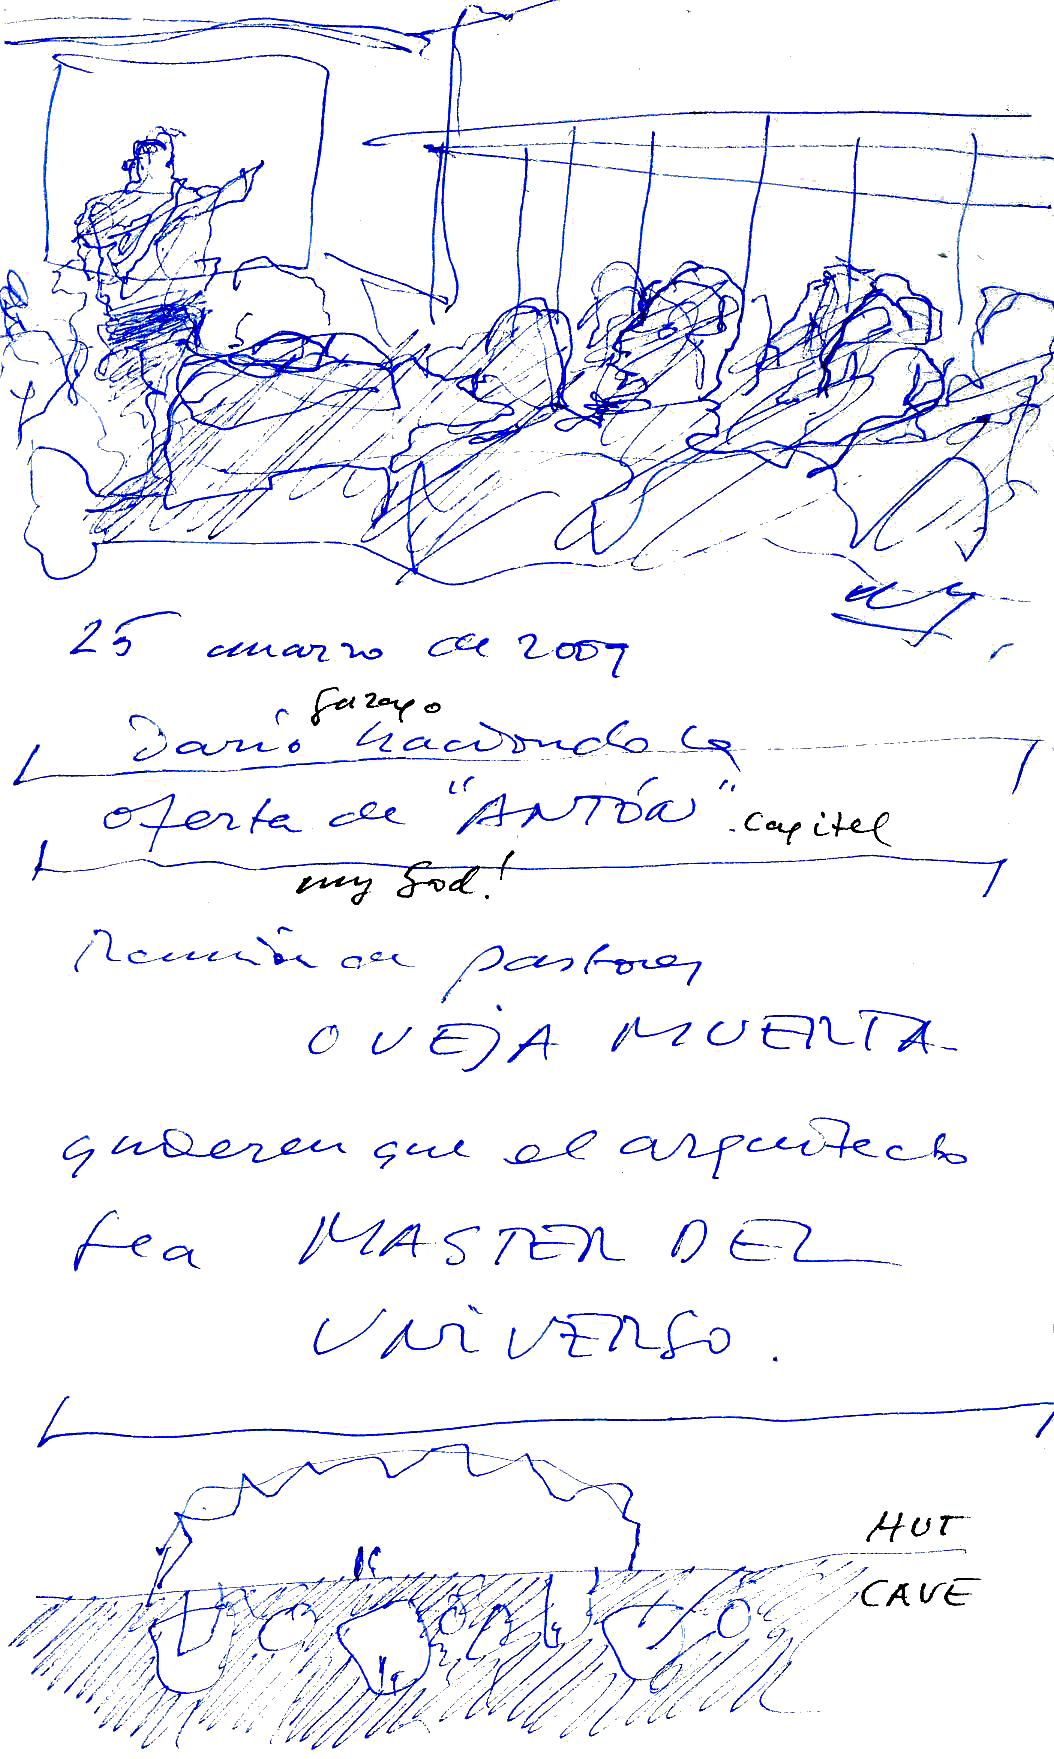 25 marzo de 2009
gazapo
Dario haciendo la
oferta de "ANTÓN". Capitel
my God!
Reunión de pastores
OVEJA MUERTA.
quieren que el arquitecto
sea MASTER DEL
UNIVERSO.
HUT
CAVE